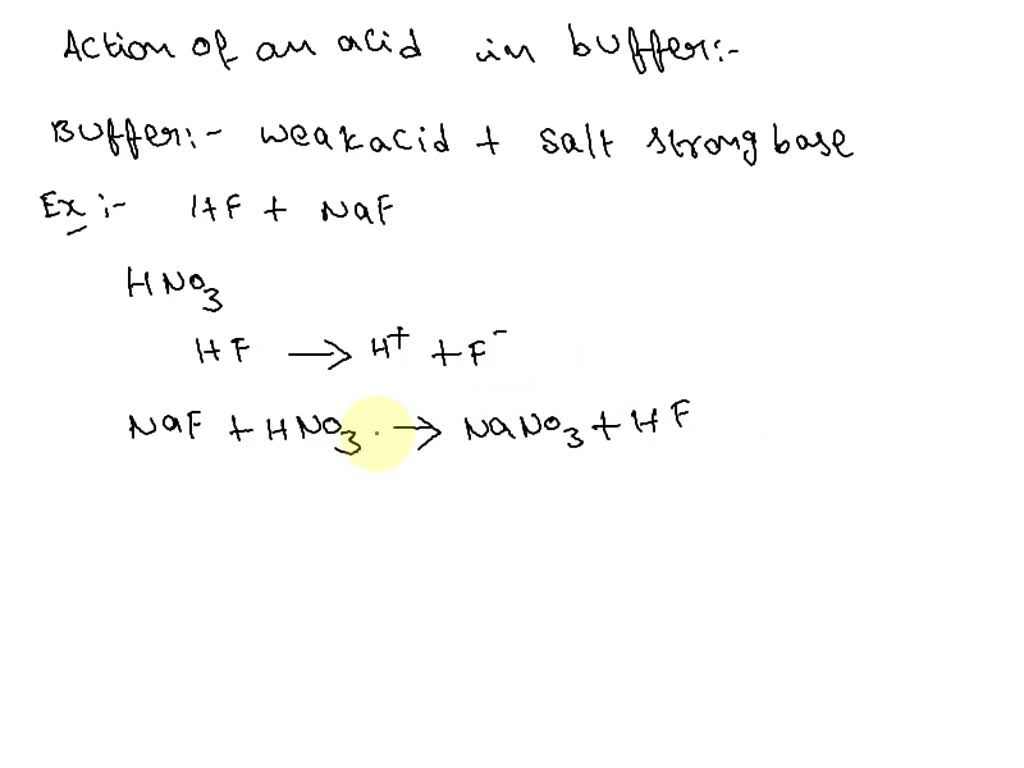 Action of an acid in buffer:-
Buffer:- weak acid + salt strong base
Ex:- HF + NaF
HNO3
HF → H⁺ + F⁻
NaF + HNO3 → NaNO3 + HF